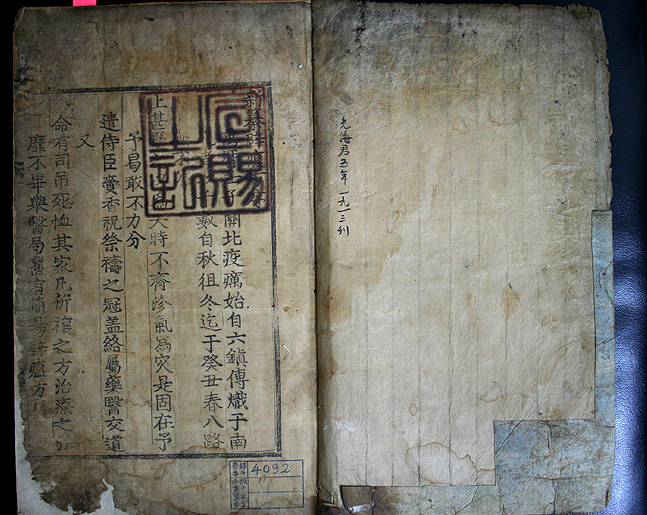 光海君五年 一九一三刊
內賜之記
新纂辟
關北疫癘始自六鎮傳熾于南
數自秋徂冬迄于癸丑春八路
上甚
為天時不齊沴氣為災是固在予
予曷敢不力分
遣侍臣賫香祝祭禱之冠盖絡屬藥醫交道
又
命有司吊死恤其家凡祈禳之方治療之
靡不畢舉醫局舊有簡易辟瘟方
4092